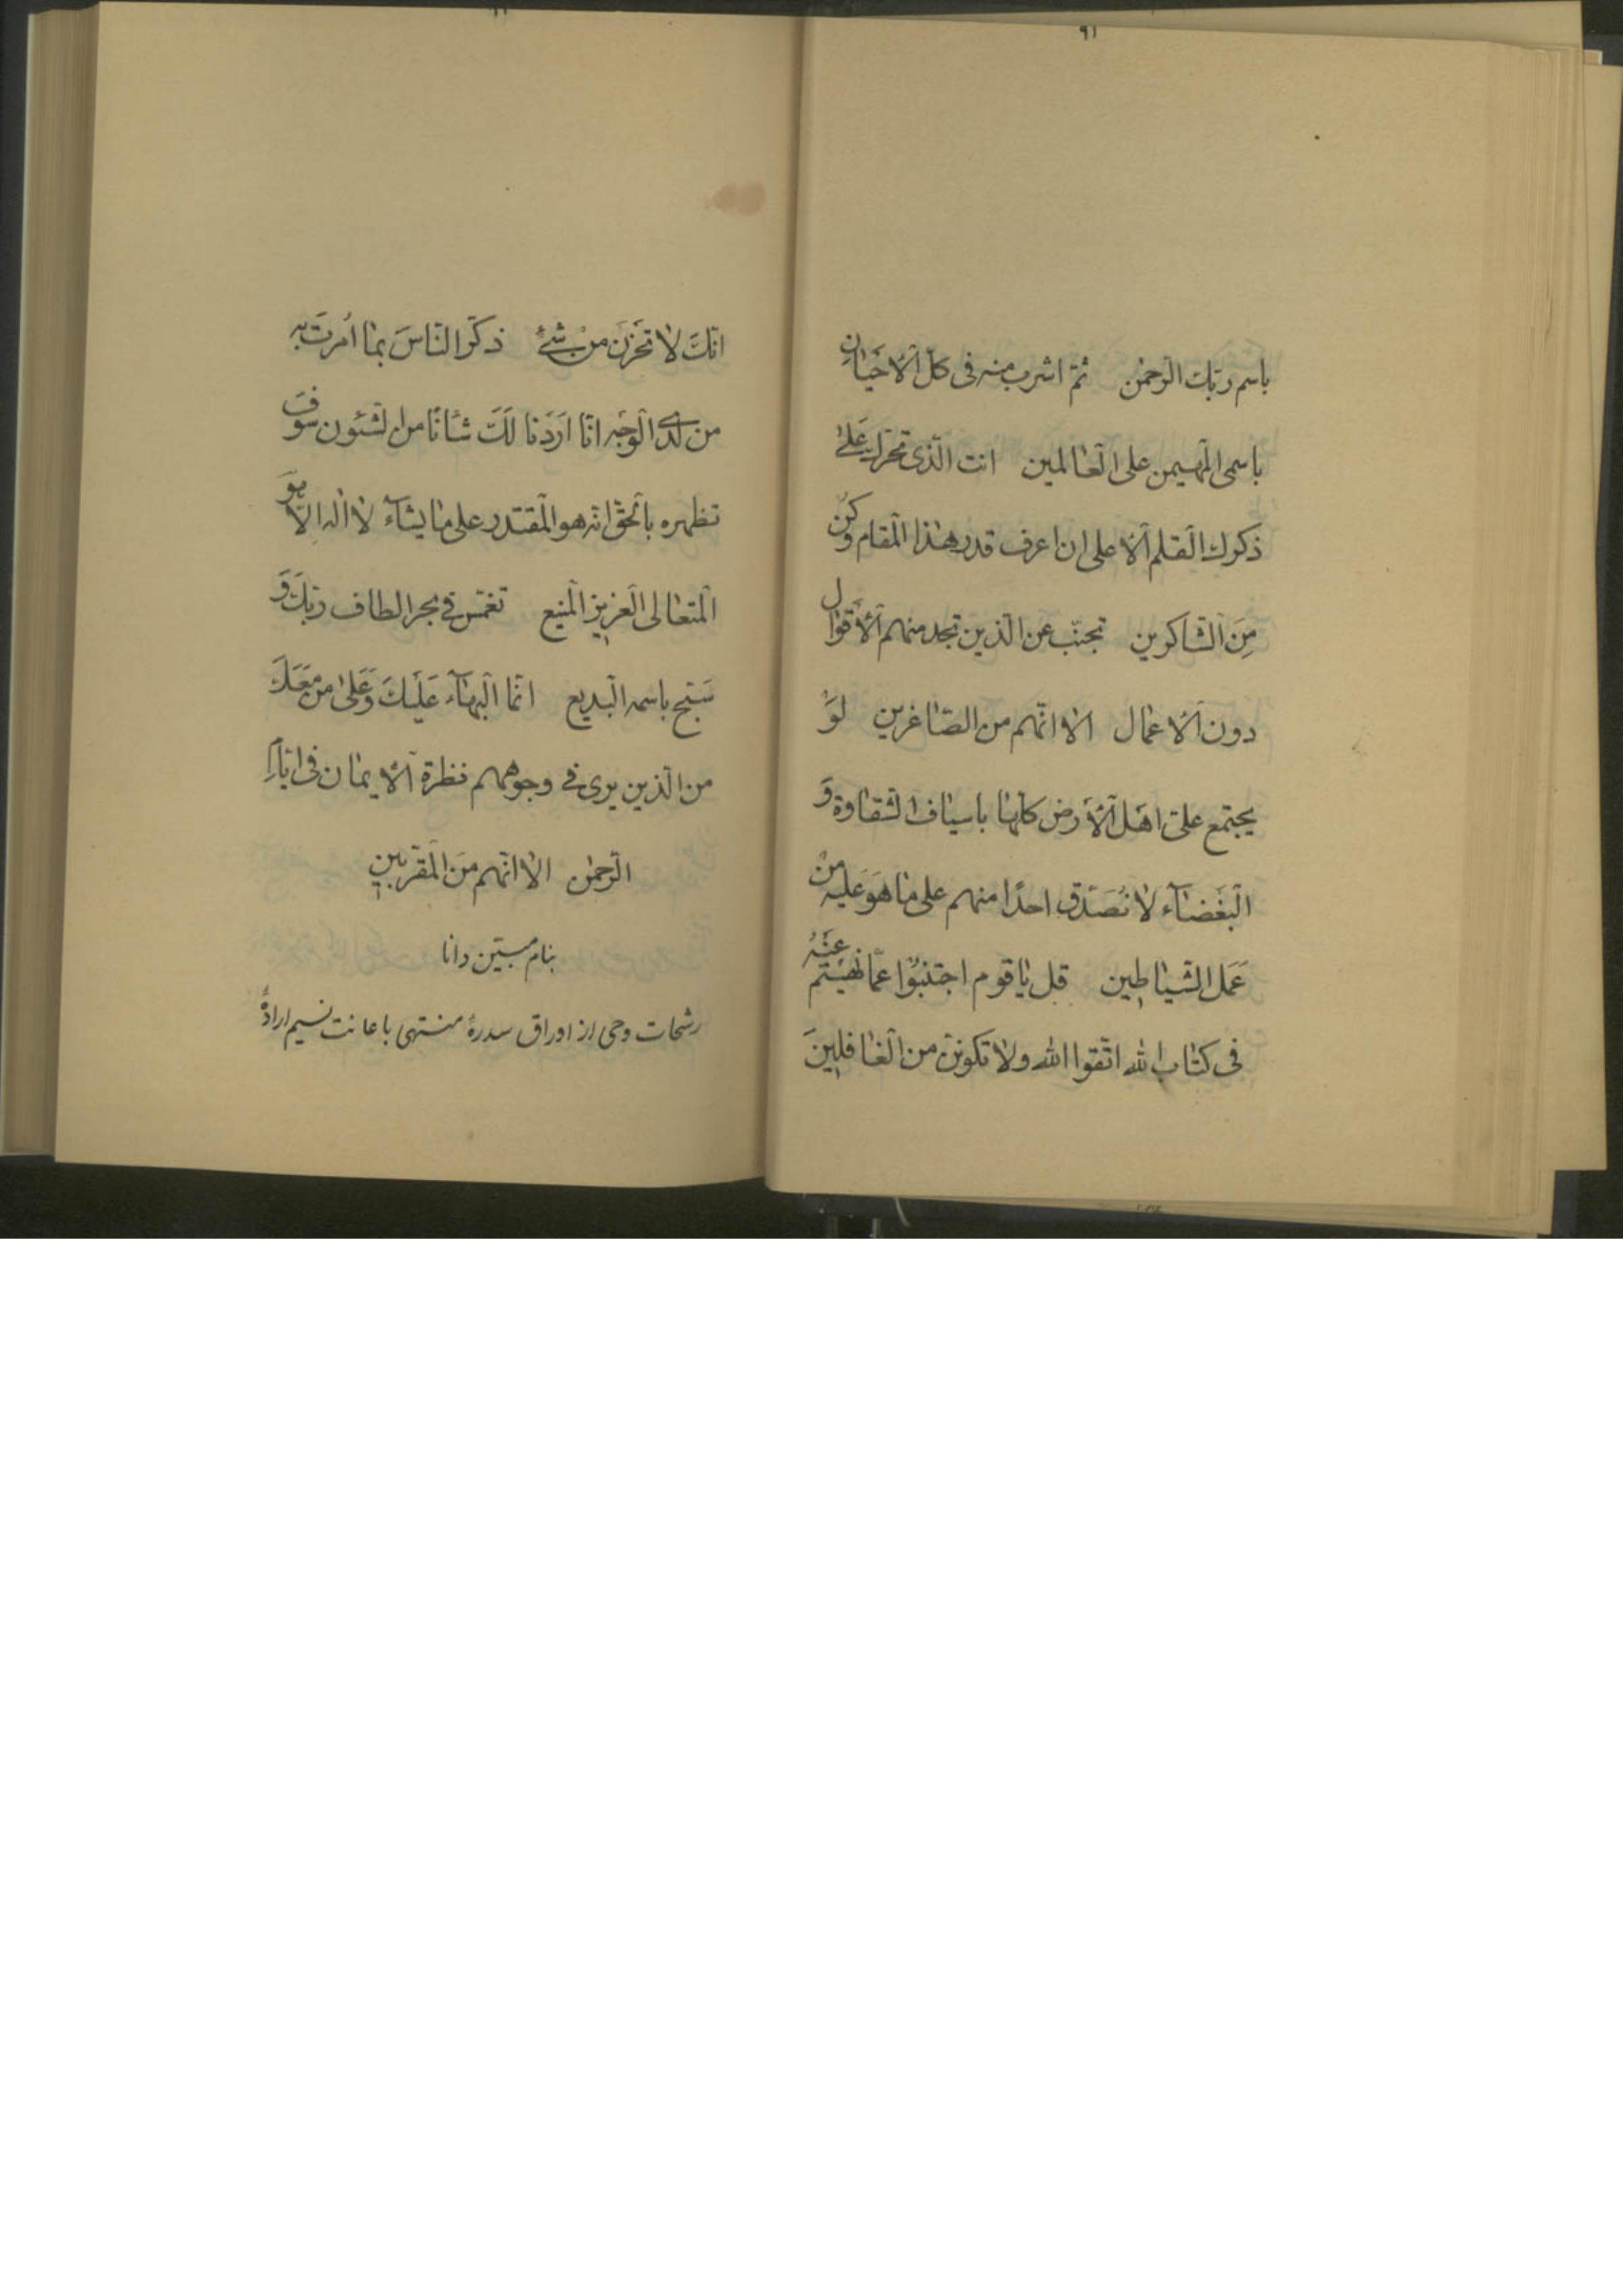 ٩١
باسم ربّك الرّحمٰن ثمّ اشرب منه فی کلّ الْاَحْیٰانِ
باسمی المهیمن علی الْعٰالمین انت الّذی تحرّك عَلیٰ
ذکرك الْقلم الْاعلی ان اعرف قدر هٰذا الْمقام وَکُن
مِنَ الشّٰاکرین تجنّب عن الّذین تجد منهم الْاَقوٰال
دون الْاعمٰال الا انّهم من الصّٰاغرین لَوْ
یجتمع علیّ اهل الْاَرض کلّهٰا باسیٰاف الشّقٰاوة وَ
الْبَغْضٰاۤء لا نُصَدّق احدًا منهم علی مٰا هَوَ علیه مِنْ
عَمَل الشّیٰاطین قل یٰا قوم اجتنبُوْا عمّا نُهیْتم عَنْهُ
فی کتٰاب الله اتّقوا الله ولا تکوننّ من الْغٰافلینَ
انّكَ لا تَحْزَنَ من شیْئ ذکّر النّاسَ بمٰا اُمرتَ به
من لَدَی الْوجْه انّا اَرَدْنا لَكَ شأنًا من الشّئون سَوْفَ
نظهره بالْحَقّ انّه هو الْمقتدر علی مٰا یشآء لا اله الّا هوَ
الْمتعٰالی الْعزیز الْمنیع تغمّس فی بحر الطاف ربّكَ وَ
سَبّح باسمه الْبدیع انّما الْبهٰاۤء عَلَیْكَ وَعَلیٰ من مَعَكَ
من الّذین یری فی وجوههم نضرة الْایمٰان فی ایّام
الرّحمٰن الا انّهم مِنَ الْمَقرّبین
بنام مبین دانا
رشحات وحی از اوراق سدرهٔ منتهی باعانت نسیم ارادهٔ